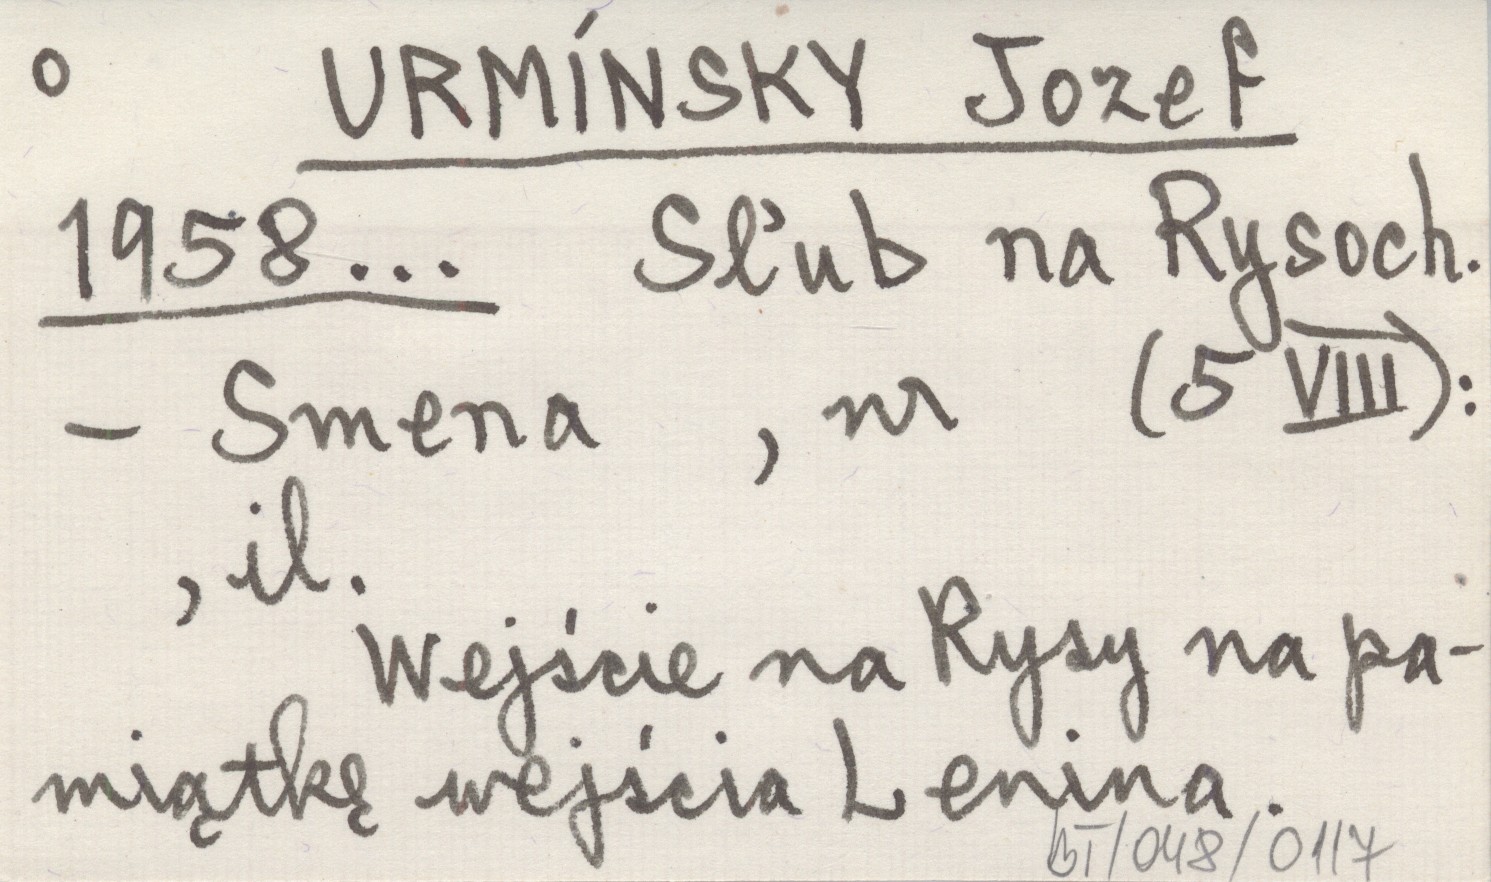 o URMÍNSKY Jozef
1958... Sľub na Rysoch.
- Smena , nr (5 VIII):
, il.
Wejście na Rysy na pa-
miątkę wejścia Lenina.
BT/048/0117